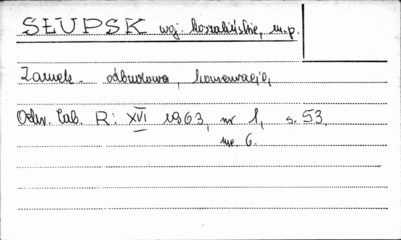 SŁUPSK woj. koszalińskie, m.p.
Zamek - odbudowa, konserwacja,
Ochr. Zab. R: XVI 1963, nr 1, s. 53.